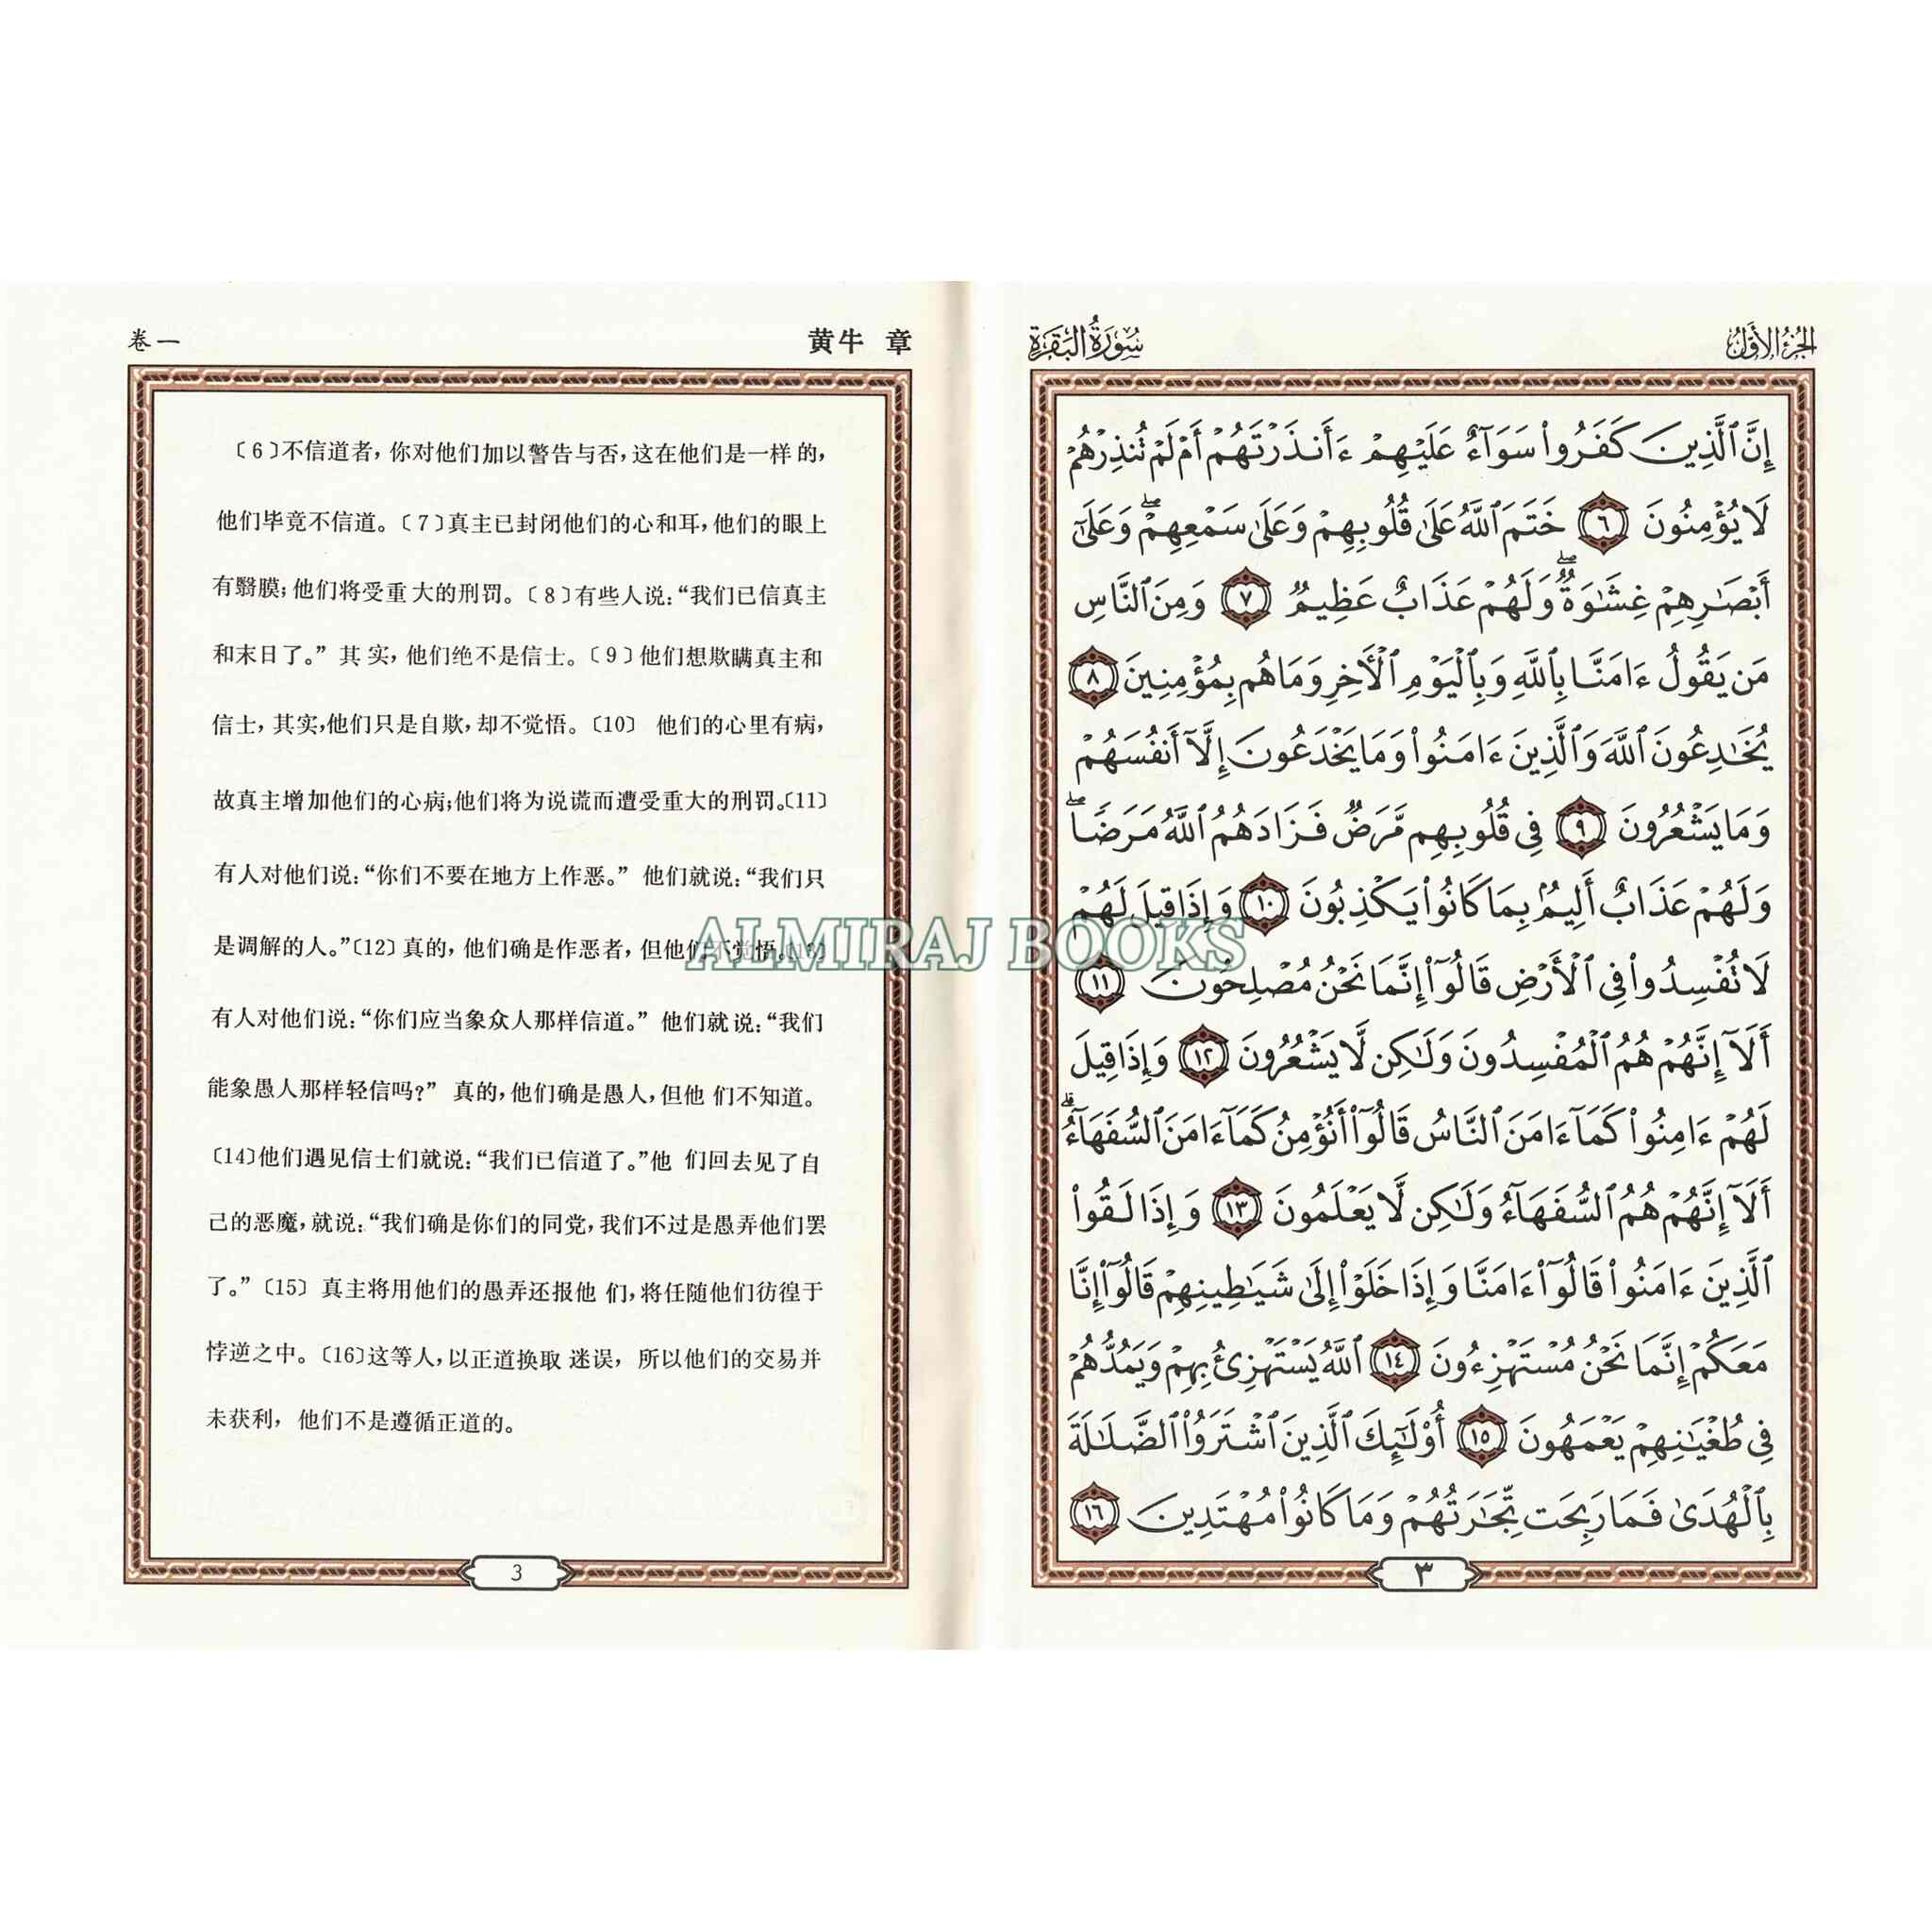 卷一
黄牛 章
〔6〕不信道者，你对他们加以警告与否，这在他们是一样的，
他们毕竟不信道。〔7〕真主已封闭他们的心和耳，他们的眼上
有翳膜；他们将受重大的刑罚。〔8〕有些人说：“我们已信真主
和末日了。” 其实，他们绝不是信士。〔9〕他们想欺瞒真主和
信士，其实，他们只是自欺，却不觉悟。〔10〕 他们的心里有病，
故真主增加他们的心病；他们将为说谎而遭受重大的刑罚。〔11〕
有人对他们说：“你们不要在地方上作恶。” 他们就说：“我们只
是调解的人。”〔12〕真的，他们确是作恶者，但他们不觉悟。〔13〕
有人对他们说：“你们应当象众人那样信道。” 他们就说：“我们
能象愚人那样轻信吗？” 真的，他们确是愚人，但他们不知道。
〔14〕他们遇见信士们就说：“我们已信道了。”他们回去见了自
己的恶魔，就说：“我们确是你们的同党，我们不过是愚弄他们罢
了。”〔15〕 真主将用他们的愚弄还报他们，将任随他们彷徨于
悖逆之中。〔16〕这等人，以正道换取迷误，所以他们的交易并
未获利，他们不是遵循正道的。
3
الجزء الأول
سورة البقرة
إِنَّ ٱلَّذِينَ كَفَرُوا۟ سَوَآءٌ عَلَيْهِمْ ءَأَنذَرْتَهُمْ أَمْ لَمْ تُنذِرْهُمْ
لَا يُؤْمِنُونَ ٦ خَتَمَ ٱللَّهُ عَلَىٰ قُلُوبِهِمْ وَعَلَىٰ سَمْعِهِمْ ۖ وَعَلَىٰٓ
أَبْصَـٰرِهِمْ غِشَـٰوَةٌ ۖ وَلَهُمْ عَذَابٌ عَظِيمٌ ٧ وَمِنَ ٱلنَّاسِ
مَن يَقُولُ ءَامَنَّا بِٱللَّهِ وَبِٱلْيَوْمِ ٱلْـَٔاخِرِ وَمَا هُم بِمُؤْمِنِينَ ٨
يُخَـٰدِعُونَ ٱللَّهَ وَٱلَّذِينَ ءَامَنُوا۟ وَمَا يَخْدَعُونَ إِلَّآ أَنفُسَهُمْ
وَمَا يَشْعُرُونَ ٩ فِى قُلُوبِهِم مَّرَضٌ فَزَادَهُمُ ٱللَّهُ مَرَضًا ۖ
وَلَهُمْ عَذَابٌ أَلِيمٌۢ بِمَا كَانُوا۟ يَكْذِبُونَ ١٠ وَإِذَا قِيلَ لَهُمْ
لَا تُفْسِدُوا۟ فِى ٱلْأَرْضِ قَالُوٓا۟ إِنَّمَا نَحْنُ مُصْلِحُونَ ١١
أَلَآ إِنَّهُمْ هُمُ ٱلْمُفْسِدُونَ وَلَـٰكِن لَّا يَشْعُرُونَ ١٢ وَإِذَا قِيلَ
لَهُمْ ءَامِنُوا۟ كَمَآ ءَامَنَ ٱلنَّاسُ قَالُوٓا۟ أَنُؤْمِنُ كَمَآ ءَامَنَ ٱلسُّفَهَآءُ ۗ
أَلَآ إِنَّهُمْ هُمُ ٱلسُّفَهَآءُ وَلَـٰكِن لَّا يَعْلَمُونَ ١٣ وَإِذَا لَقُوا۟
ٱلَّذِينَ ءَامَنُوا۟ قَالُوٓا۟ ءَامَنَّا وَإِذَا خَلَوْا۟ إِلَىٰ شَيَـٰطِينِهِمْ قَالُوٓا۟ إِنَّا
مَعَكُمْ إِنَّمَا نَحْنُ مُسْتَهْزِءُونَ ١٤ ٱللَّهُ يَسْتَهْزِئُ بِهِمْ وَيَمُدُّهُمْ
فِى طُغْيَـٰنِهِمْ يَعْمَهُونَ ١٥ أُو۟لَـٰٓئِكَ ٱلَّذِينَ ٱشْتَرَوُا۟ ٱلضَّلَـٰلَةَ
بِٱلْهُدَىٰ فَمَا رَبِحَت تِّجَـٰرَتُهُمْ وَمَا كَانُوا۟ مُهْتَدِينَ ١٦
٣
ALMIRAJ BOOKS